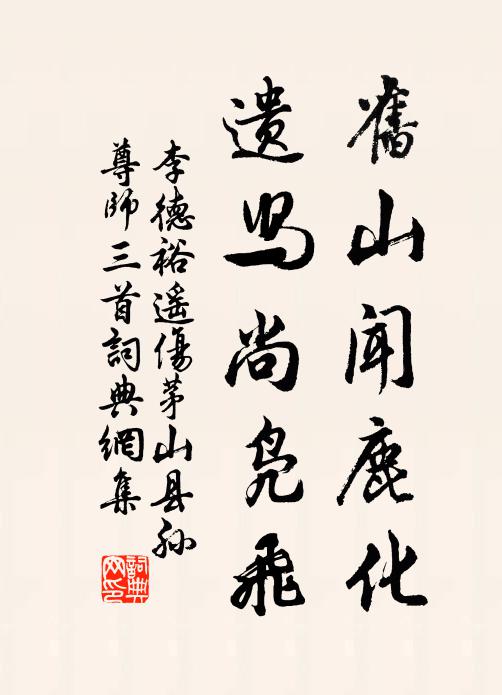 舊山聞鹿化
遺舄尚鳧飛
李德裕遥傷茅山县孫
尊師三首詞典網集
詞典网印